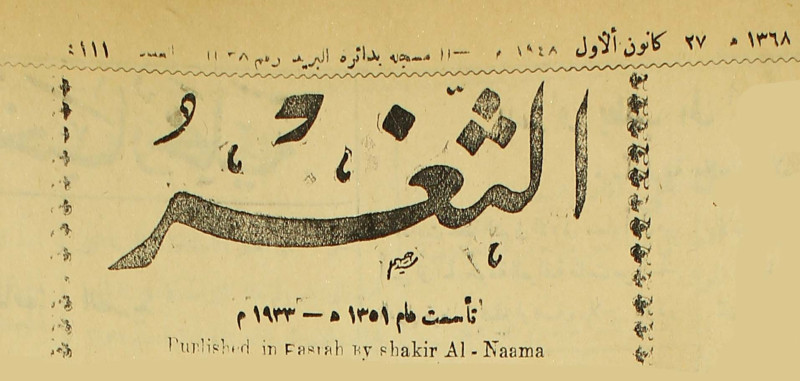 ١٣٦٨ ه ٢٧ كانون الأول ١٩٤٨ م — مسجله بدائرة البريد رقم العدد ١١١
الثغر
تأسست عام ١٣٥١ ه — ١٩٣٣ م
Purlished in Basrah By shakir Al - Naama